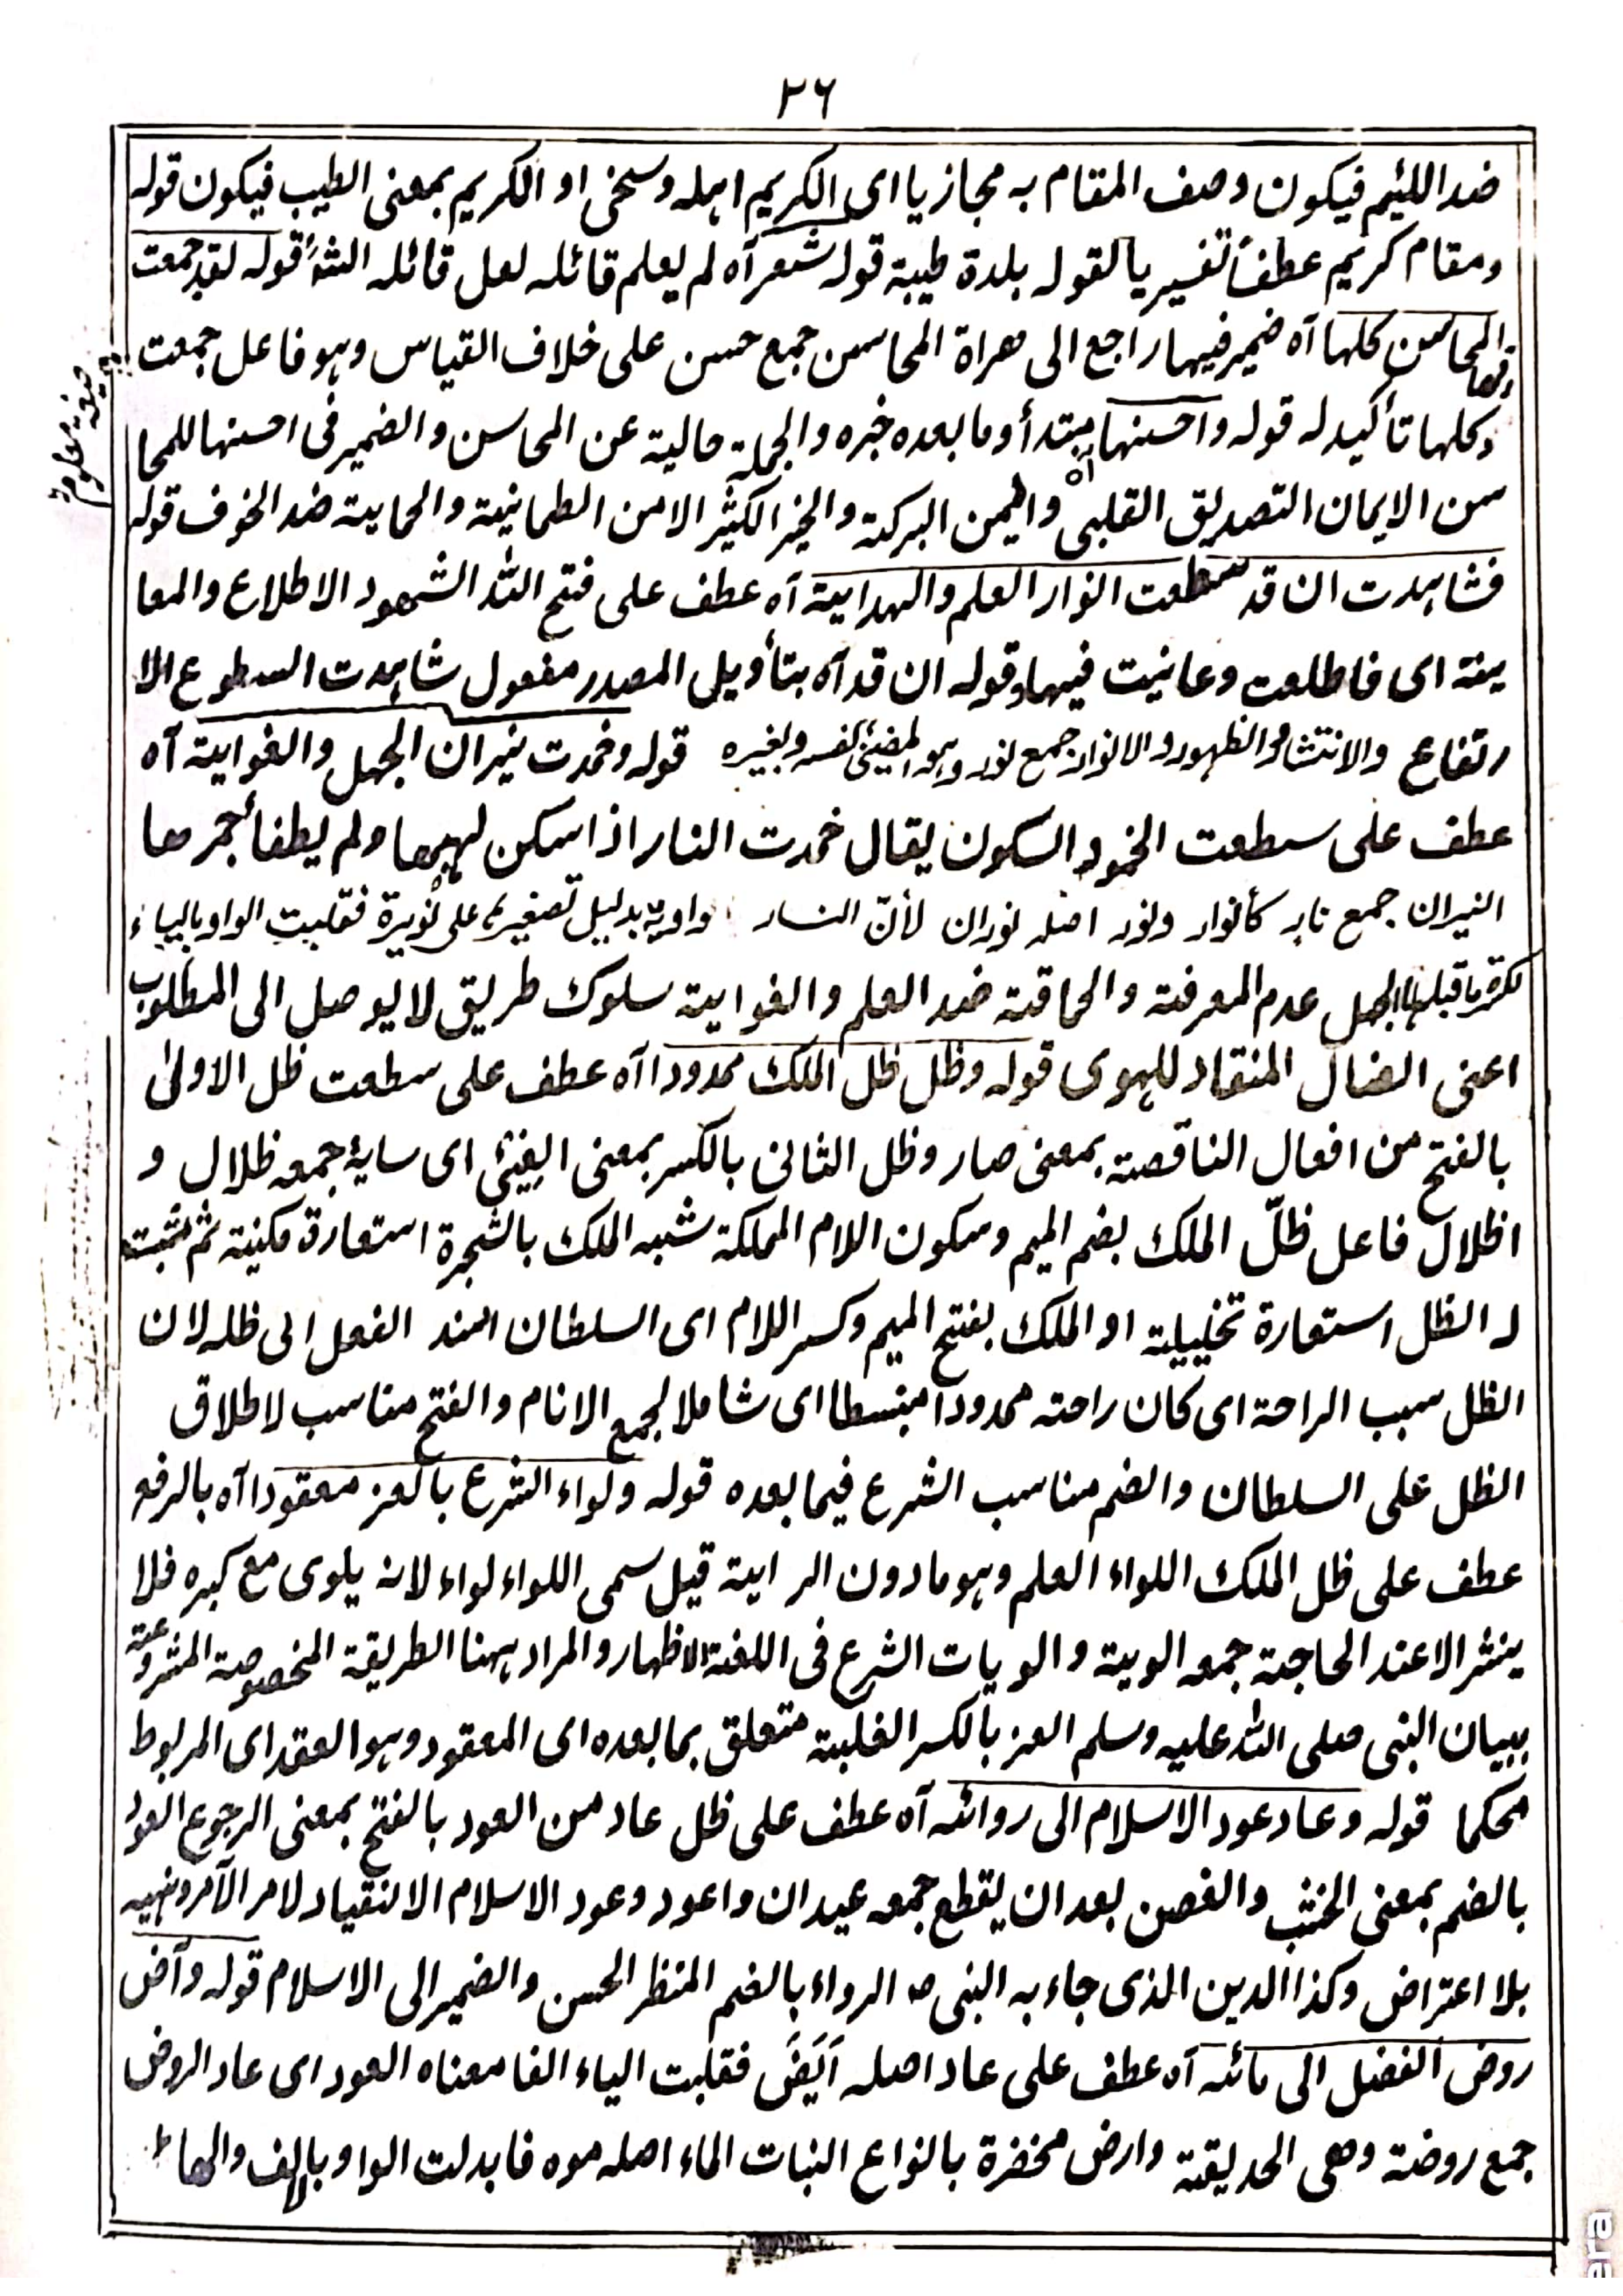 ٢٦
ضد اللئيم فيكون وصف المقام به مجازيا اى الكريم اهله وسخى او الكريم بمعنى الطيب فيكون قوله
ومقام كريم عطفاً تفسيريا لقوله بلدة طيبة قوله شعر آه لم يعلم قائله لعل قائله الشہ قوله لقد جمعت
فيها المحاسن كلها آه ضمير فيها راجع الى هراة المحاسن جمع حسن على خلاف القياس وهو فاعل جمعت
صيغة معلومة
وكلها تأكيد له قوله واحسنها آه مبتدأ وما بعده خبره والجملة حالية عن المحاسن والضمير فى احسنها للمحا
سن الايمان التصديق القلبى واليمن البركة والخير الكثير الامن الطمانينة والحماية ضد الخوف قوله
فشاهدت ان قد سطعت انوار العلم والهداية آه عطف على فتح الله الشهود الاطلاع والمعا
ينة اى فاطلعت وعاينت فيها وقوله ان قد آه بتأويل المصدر مفعول شاهدت السطوع الا
رتفاع والانتشار والظهور والانوار جمع نور وهو المضيئ لنفسه ولغيره قوله وخمدت نيران الجهل والغواية آه
عطف على سطعت الخمود السكون يقال خمدت النار اذا سكن لهبها ولم يطفأ جمرها
النيران جمع نار كأنوار ونور اصله نوران لأنّ النار واوية بدليل تصغيرها على نُويرة فقلبت الواو بالياء
لكسرة ما قبلها الجهل عدم المعرفة والحماقة ضد العلم والغواية سلوك طريق لا يوصل الى المطلوب
اعنى الضال المنقاد للهوى قوله وظل ظل الملك ممدودا آه عطف على سطعت ظل الاولىٰ
بالفتح من افعال الناقصة بمعنى صار وظل الثانى بالكسر بمعنى الفيئ اى سايۀ جمعه ظلال و
اظلال فاعل ظلّ الملك بضم الميم وسكون اللام المملكة شبه الملك بالشجرة استعارة مكنية ثم ثبت
له الظل استعارة تخييلية او الملك بفتح الميم وكسر اللام اى السلطان اسند الفعل الى ظله لان
الظل سبب الراحة اى كان راحته ممدودا منبسطا اى شاملا لجمع الانام والفتح مناسب لاطلاق
الظل على السلطان والضم مناسب الشرع فيما بعده قوله ولواء الشرع بالعز معقودا آه بالرفع
عطف على ظل الملك اللواء العلم وهو مادون الراية قيل سمى اللواء لواء لانه يلوى مع كبره فلا
ينشر الا عند الحاجة جمعه الوية والويات الشرع فى اللغة الاظهار والمراد ههنا الطريقة المخصوصة المشروعة
ببيان النبى صلى الله عليه وسلم العز بالكسر الغلبة متعلق بما بعده اى المعقود وهو العقد اى المربوط
محكما قوله وعاد عود الاسلام الى روائه آه عطف على ظل عاد من العود بالفتح بمعنى الرجوع العود
بالضم بمعنى الخشب والغصن بعد ان يقطع جمعه عيدان واعود وعود الاسلام الانقياد لامر الآمر ونهيه
بلا اعتراض وكذا الدين الذى جاء به النبى ﷺ الرواء بالضم المنظر الحسن والضمير الى الاسلام قوله وآض
روض الفضل الى مائه آه عطف على عاد اصله اَيَضَ فقلبت الياء الفا معناه العود اى عاد الروض
جمع روضة وهى الحديقة وارض مخضرة بانواع النبات الماء اصله موه فابدلت الواو بالالف والهاء